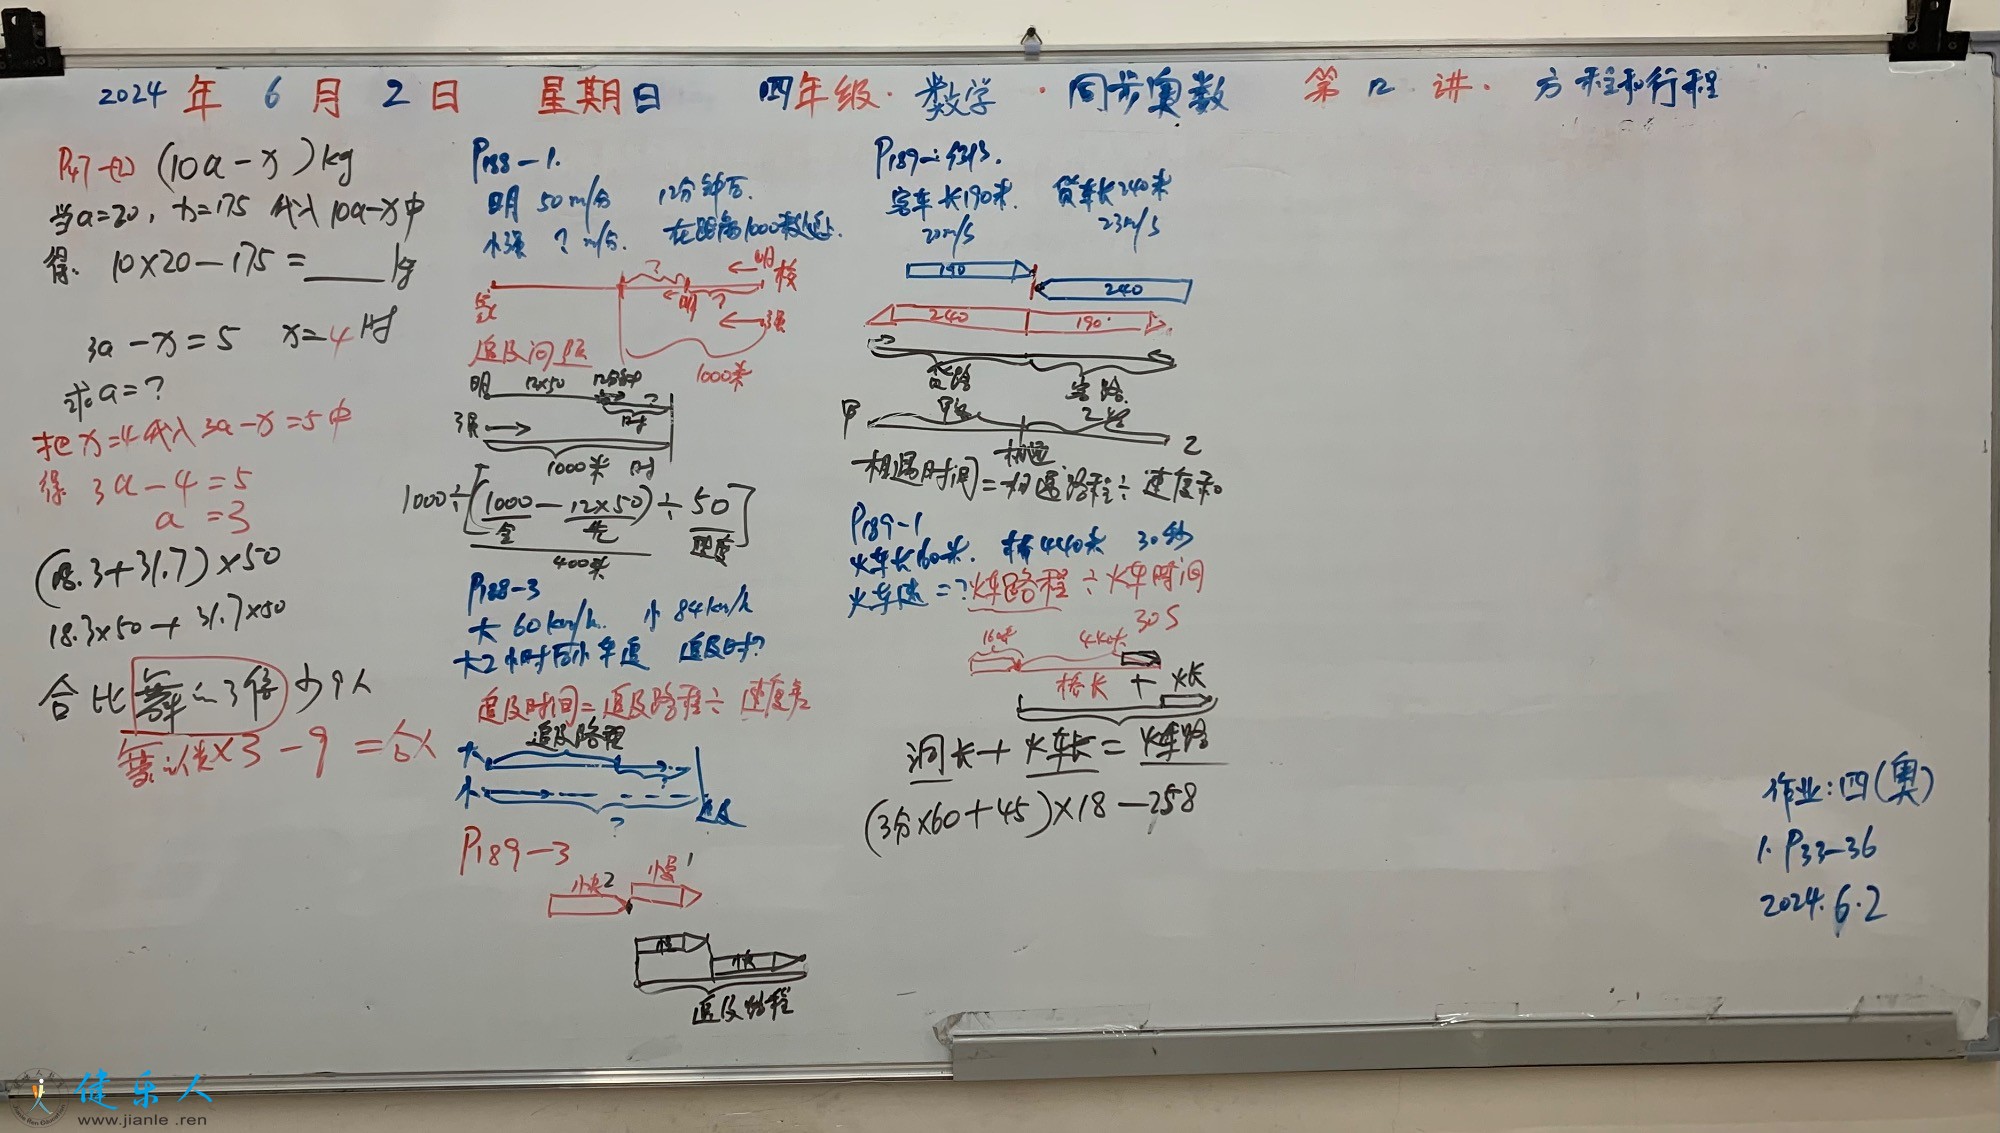 2024年6月2日 星期日 四年级·数学·同步奥数 第12讲·方程和行程
(10a-x)kg
当a=20,x=175代入10a-x中
得. 10×20-175=____kg
3a-x=5 x=4时
求a=?
把x=4代入3a-x=5中
得 3a-4=5
a=3
(18.3+31.7)×50
18.3×50+31.7×50
合比舞的3倍少9人
舞的人数×3-9=合人
P188-1.
明 50m/分 12分钟后.
小强 ?m/分. 在距离1000米处追上.
?
←明校
家
明 ?
←强
追及问题
1000米
明 12×50 12分钟 ?
强 → 时
1000米 时
1000÷[(1000-12×50)÷50]
全 先 速度
400米
P188-3
大 60km/h. 小 84km/h
大2小时后小车追 追及时?
追及时间=追及路程÷速度差
追及路程
大
小
? 追及
P189-3
小快2 小慢1
追及路程
P189-
客车长190米. 货车长240米
20m/s 23m/s
190
240
240 190
货路 客路.
甲 甲路 乙路
相遇 乙
相遇时间=相遇路程÷速度和
P189-1
火车长160米. 桥440米 30秒
火车速=?火车路程÷火车时间
30s
160米 440米
桥长+火长
洞长+火车长=火车路
(3分×60+45)×18-258
作业:四(奥)
1. P33-36
2024.6.2
健乐人
www.jianle.ren